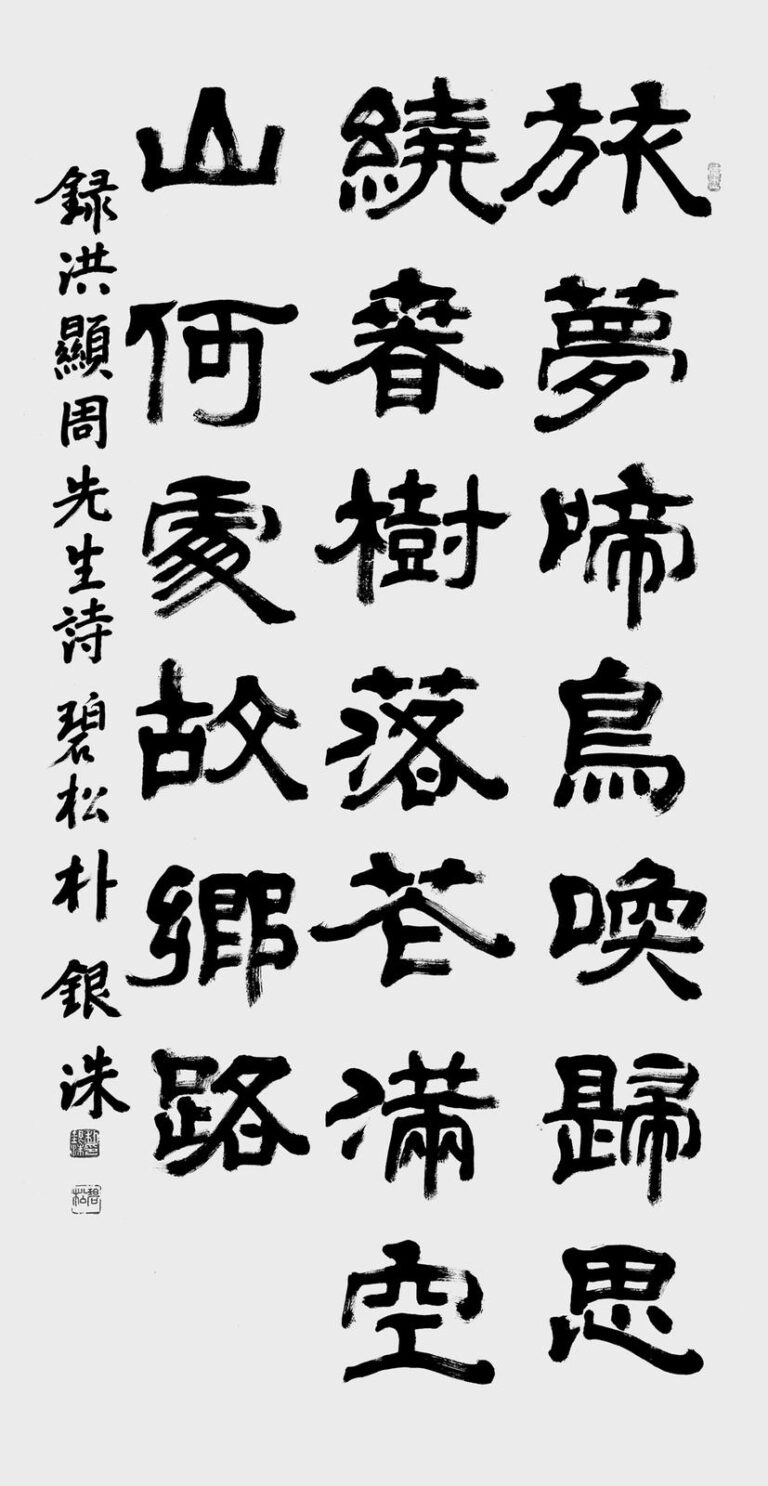 旅夢啼鳥喚歸思
繞春樹落花滿空
山何處故鄉路
録洪顯周先生詩 碧松 朴銀洙
碧松